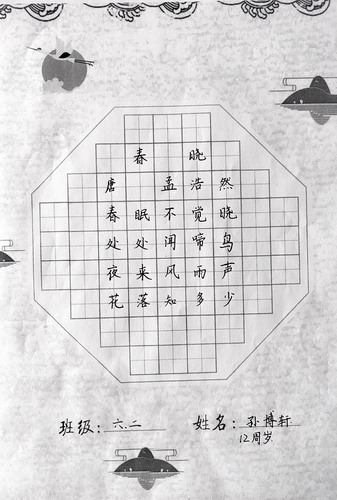 春 晓
唐 孟 浩 然
春 眠 不 觉 晓
处 处 闻 啼 鸟
夜 来 风 雨 声
花 落 知 多 少
班级：六.二 姓名：孙博轩
12周岁